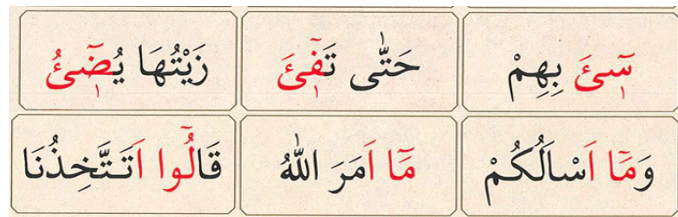 سٓئَ بِهِمْ حَتّٰى تَفٓئَ زَيْتُهَا يُضٓئُ
وَمَٓا اَسْاَلُكُمْ مَٓا اَمَرَ اللّٰهُ قَالُٓوا اَتَتَّخِذُنَا